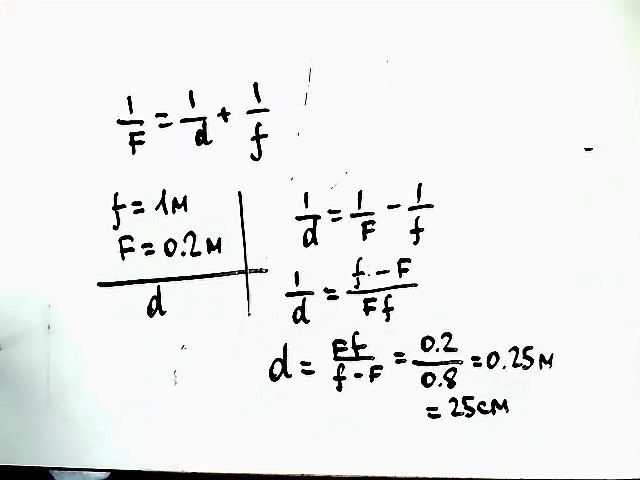 1/F = 1/d + 1/f
f = 1м
F = 0.2м
d
1/d = 1/F - 1/f
1/d = (f - F)/(Ff)
d = Ff/(f - F) = 0.2/0.8 = 0.25м
= 25см